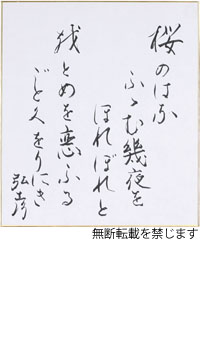 桜のはな
ふゝむ幾夜を
ほれぼれと
をとめを恋ふる
ごとくをりにき
弘彦
無断転載を禁じます